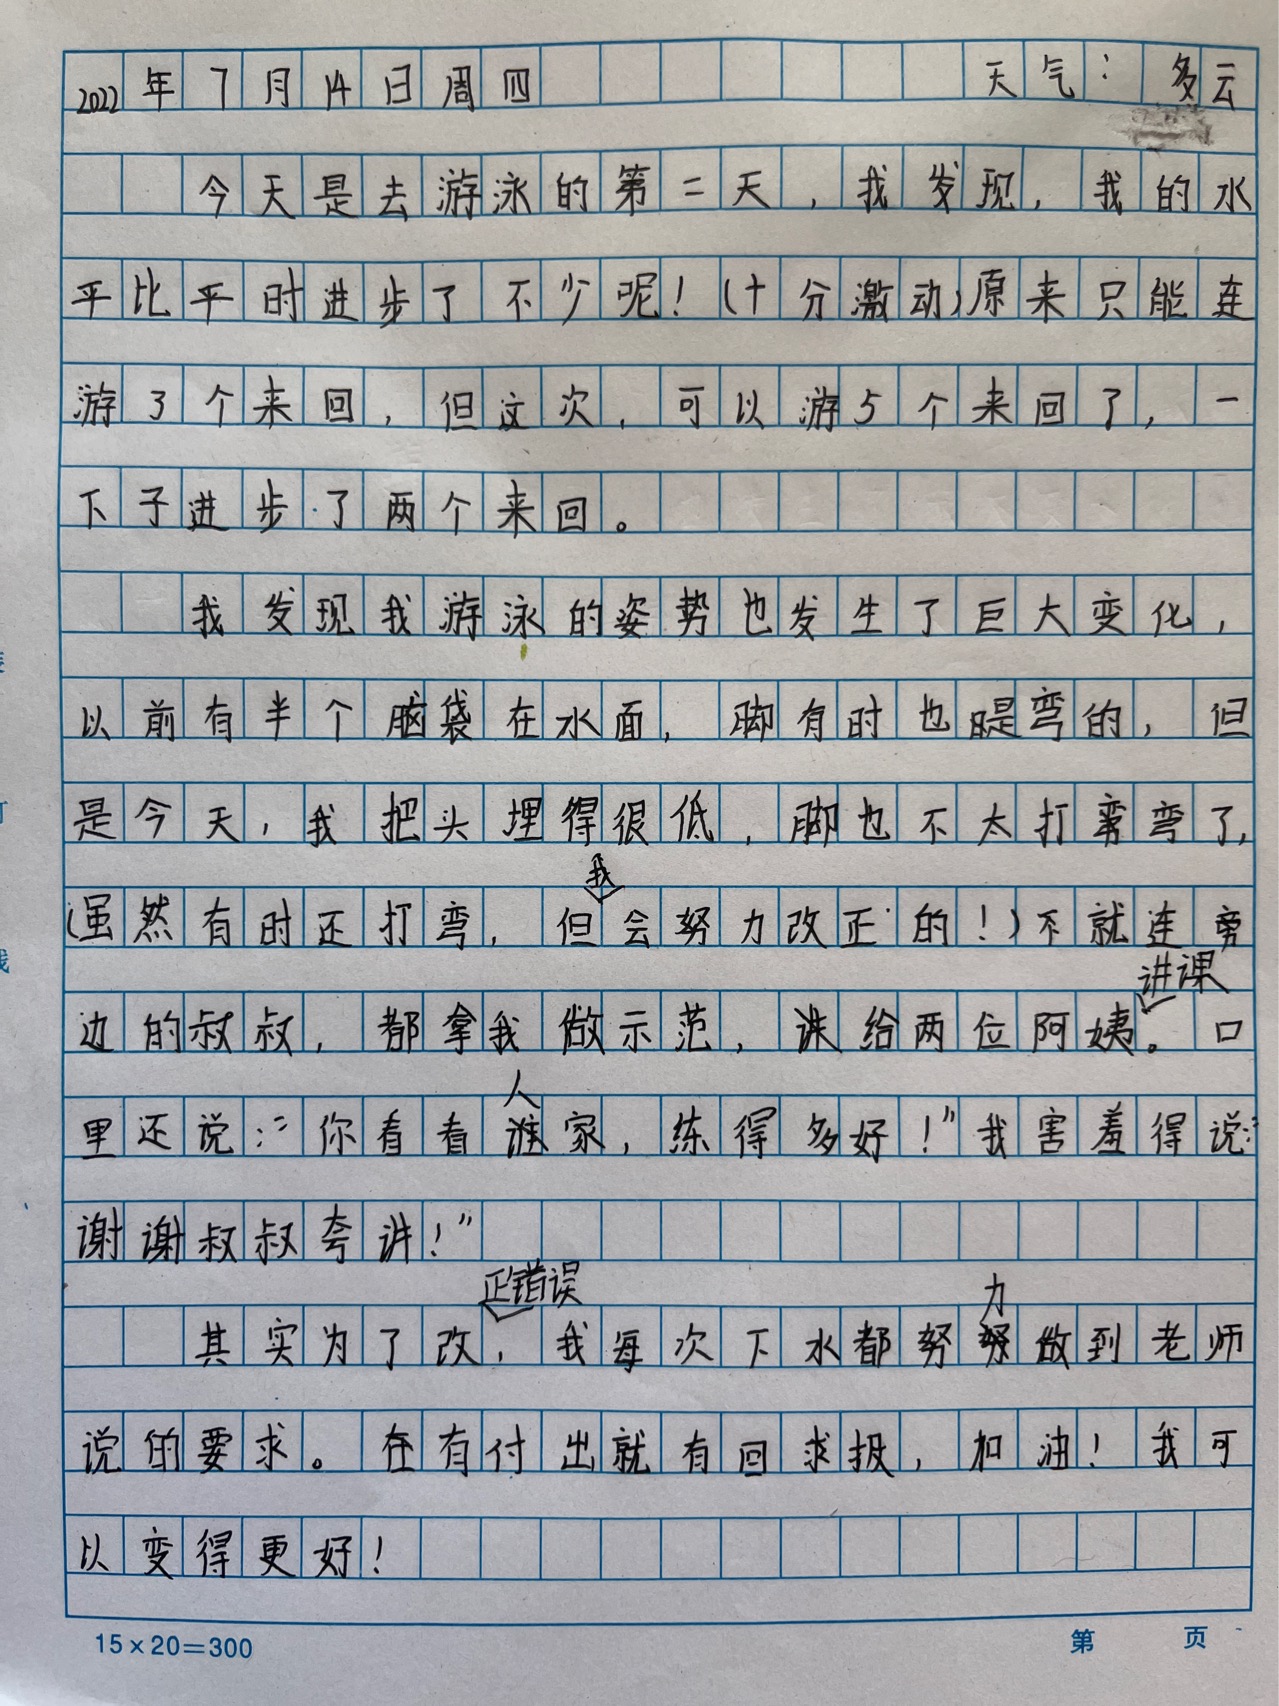 2022年7月14日周四 天气：多云
今天是去游泳的第二天，我发现，我的水
平比平时进步了不少呢！(十分激动)原来只能连
游3个来回，但这次，可以游5个来回了，一
下子进步了两个来回。
我发现我游泳的姿势也发生了巨大变化，
以前有半个脑袋在水面，脚有时也是弯的，但
是今天，我把头埋得很低，脚也不太打弯弯了，
我
(虽然有时还打弯，但会努力改正的！)不就连旁
讲课
边的叔叔，都拿我做示范，讲给两位阿姨。口
人
里还说：“你看看谁家，练得多好！”我害羞得说：“
谢谢叔叔夸讲！”
正错误 力
其实为了改，我每次下水都努努做到老师
说的要求。在有付出就有回求报，加油！我可
以变得更好！
15×20=300 第 页